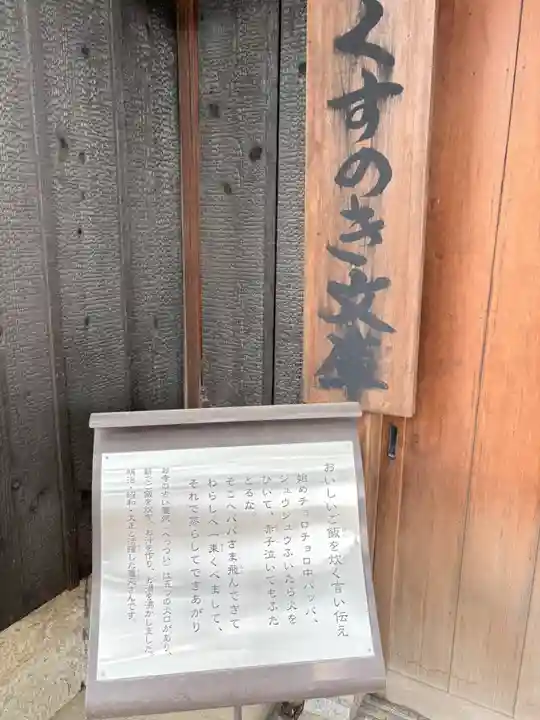 くすのき文庫
おいしいご飯を炊く言い伝え
始めチョロチョロ中パッパ、
ジュウジュウふいたら火を
ひいて、赤子泣いてもふた
とるな
そこへババさま飛んできて
わらしべ一束くべまして、
それで蒸らしてできあがり
お寺の古い竈突、へっつい は五つの火口があり、
朝夕ご飯を炊き、お汁を作り、お湯を沸かしました。
明治・昭和・大正と活躍した竈突さんです。